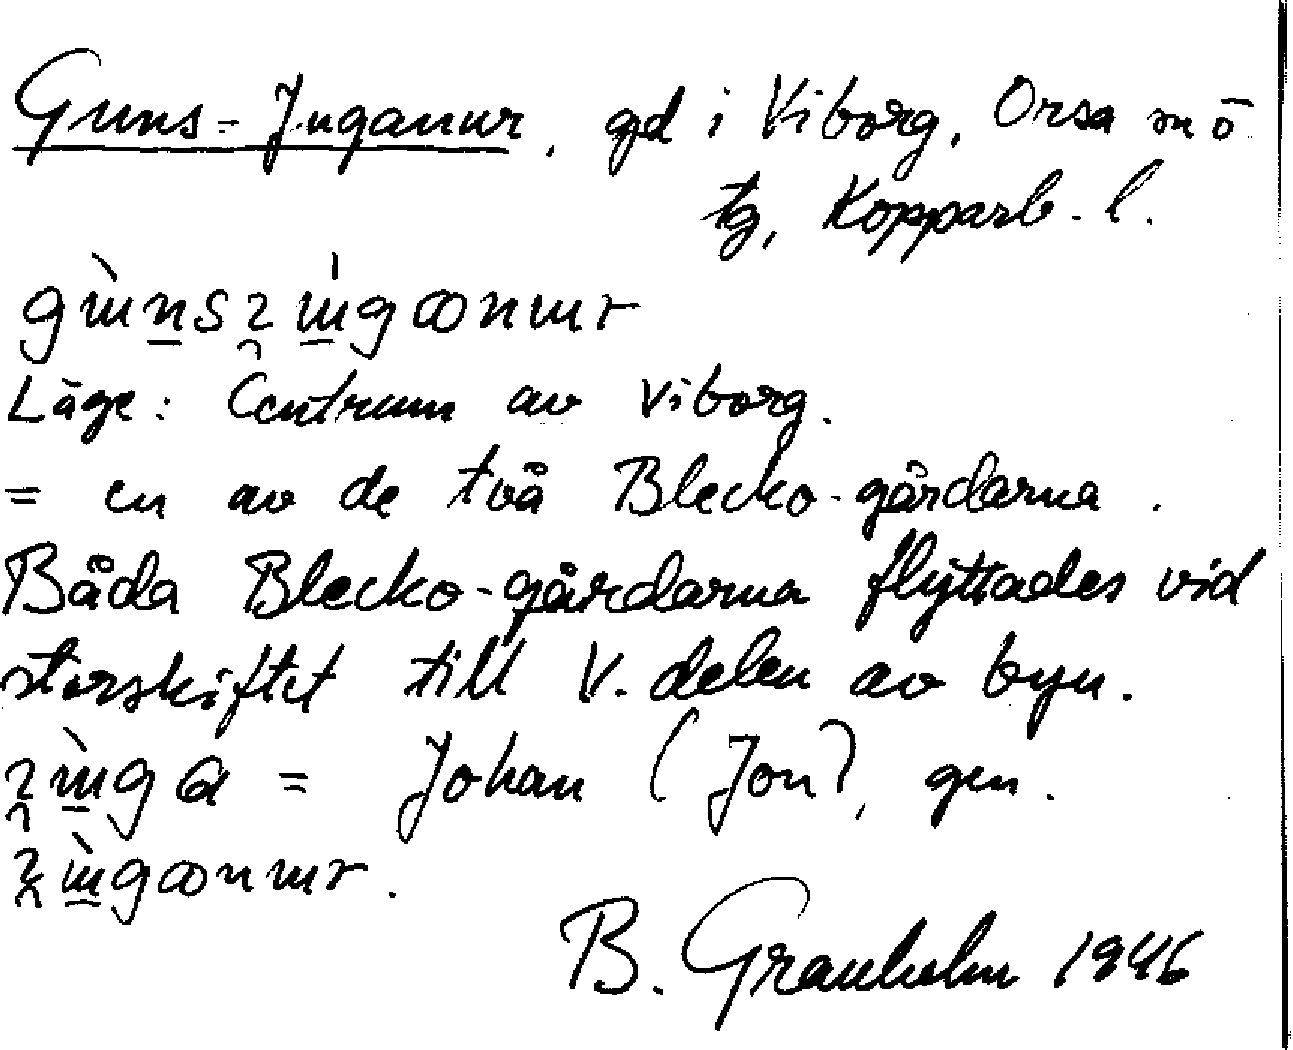 Guns-Juganur, gd i Viborg, Orsa sn ö
tg, Kopparb. l.
Läge: Centrum av Viborg.
= en av de två Blecko-gårdarna.
Båda Blecko-gårdarna flyttades vid
storskiftet till V. delen av byn.
= Johan (Jon), gen.
B. Granholm 1946